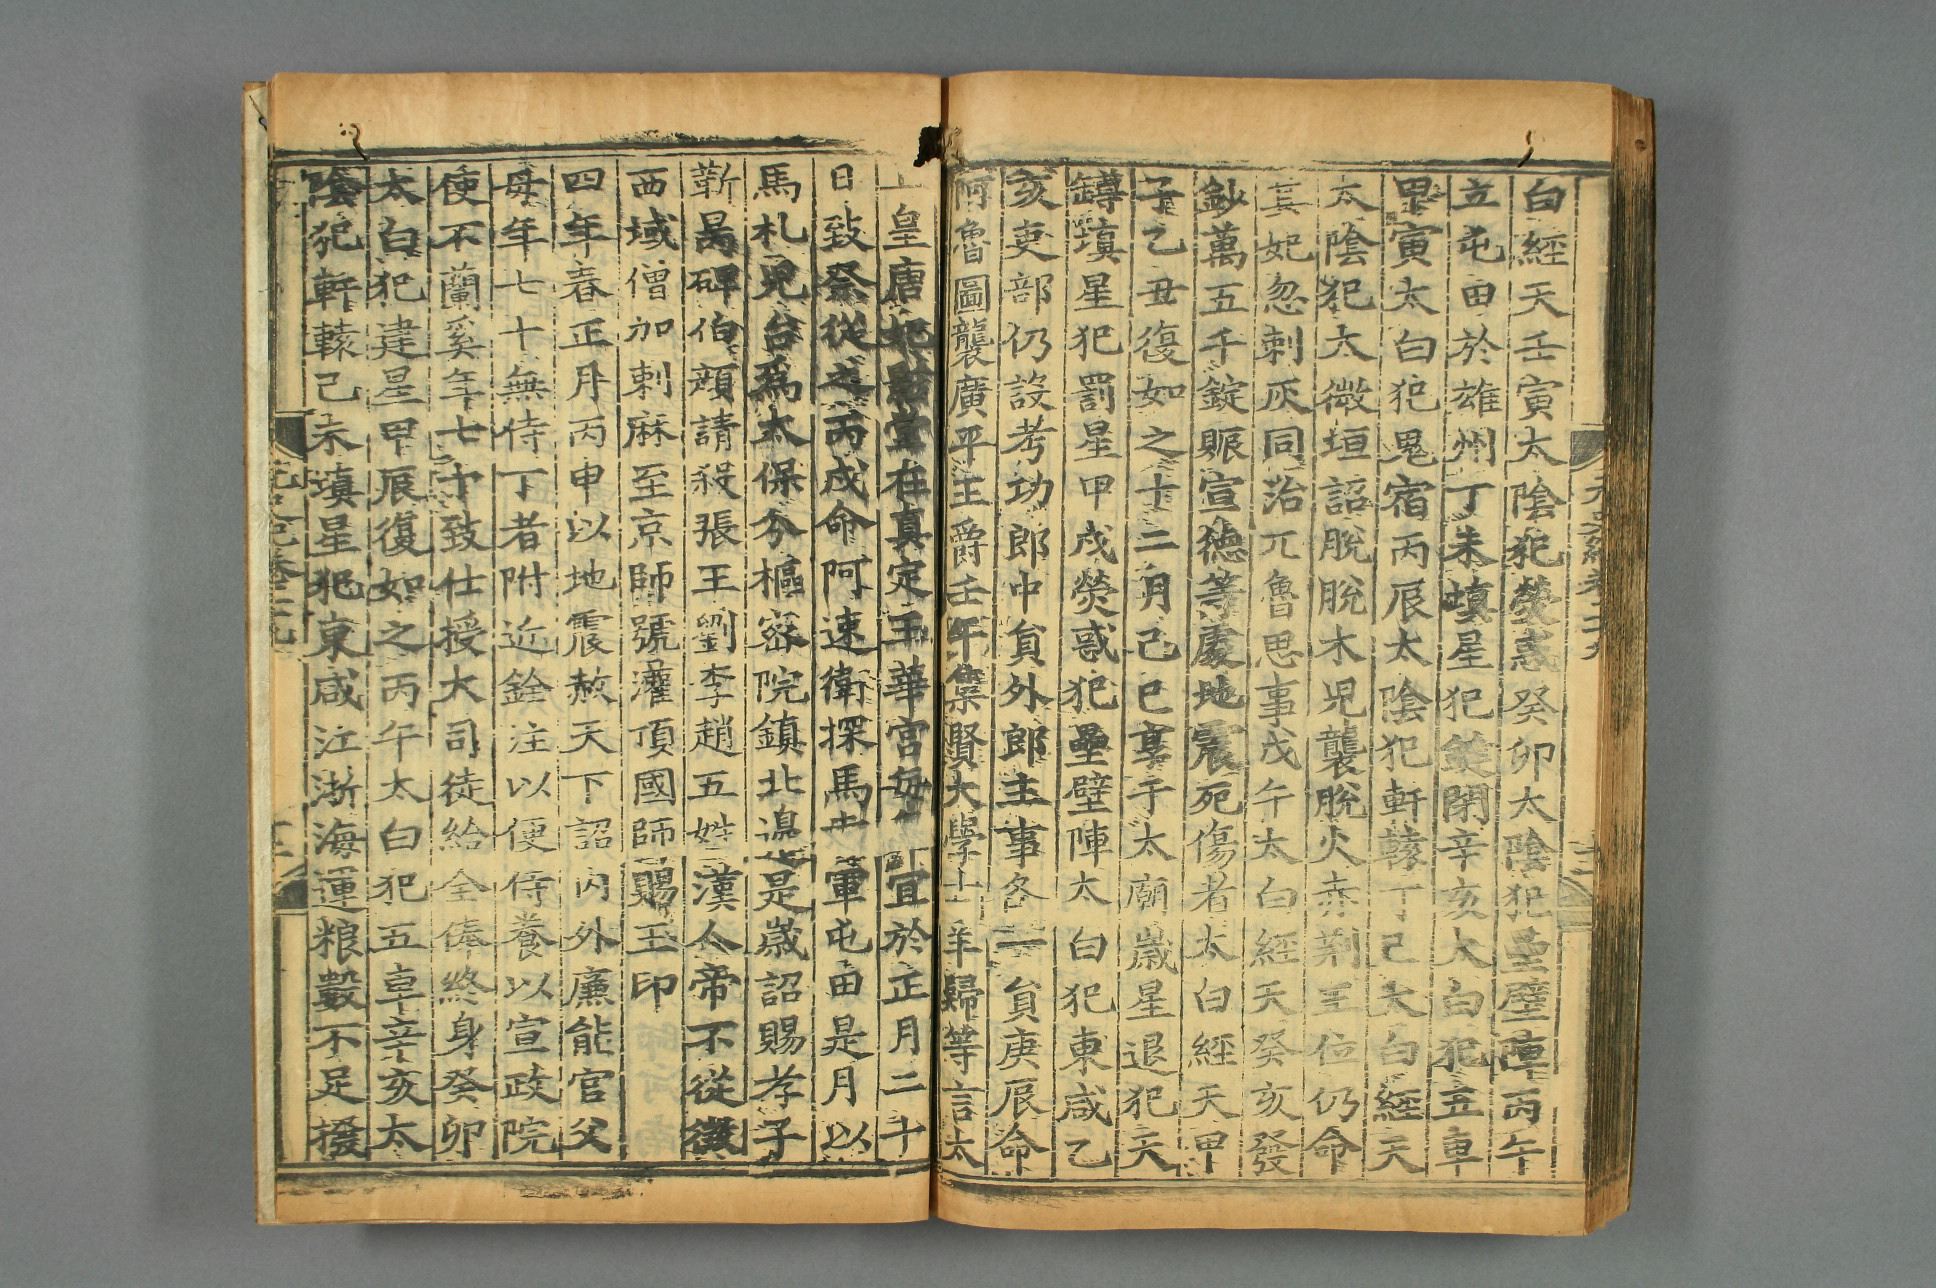 白經天壬寅太陰犯熒惑癸卯太陰犯壘壁陣丙午
立屯田於雄州丁未填星犯鍵閉辛亥太白犯五車
甲寅太白犯鬼宿丙辰太陰犯軒轅丁巳太白經天
太陰犯太微垣詔脫脫木兒襲脫火赤荆王位仍命
其妃忽剌灰同治兀魯思事戊午太白經天癸亥發
鈔萬五千錠賑宣德等處地震死傷者太白經天甲
子乙丑復如之十二月己巳享于太廟歲星退犯天
罇填星犯罰星甲戌熒惑犯壘壁陣太白犯東咸乙
亥吏部仍設考功郎中貟外郎主事各一貟庚辰命
阿魯圖襲廣平王爵壬午集賢大學士羊歸等言太
上皇唐妃影堂在真定玉華宮每年宜於正月二十
日致祭從之丙戌命阿速衛探馬赤軍屯田是月以
馬札兒台爲太保分樞密院鎮北邊是歲詔賜孝子
靳昺碑伯顏請殺張王劉李趙五姓漢人帝不從徵
西域僧加剌麻至京師號灌頂國師賜玉印
四年春正月丙申以地震赦天下詔內外廉能官父
母年七十無侍丁者附近銓注以便侍養以宣政院
使不蘭奚年七十致仕授大司徒給全俸終身癸卯
太白犯建星甲辰復如之丙午太白犯五車辛亥太
陰犯軒轅己未填星犯東咸江浙海運粮數不足撥
元史紀卷二十九